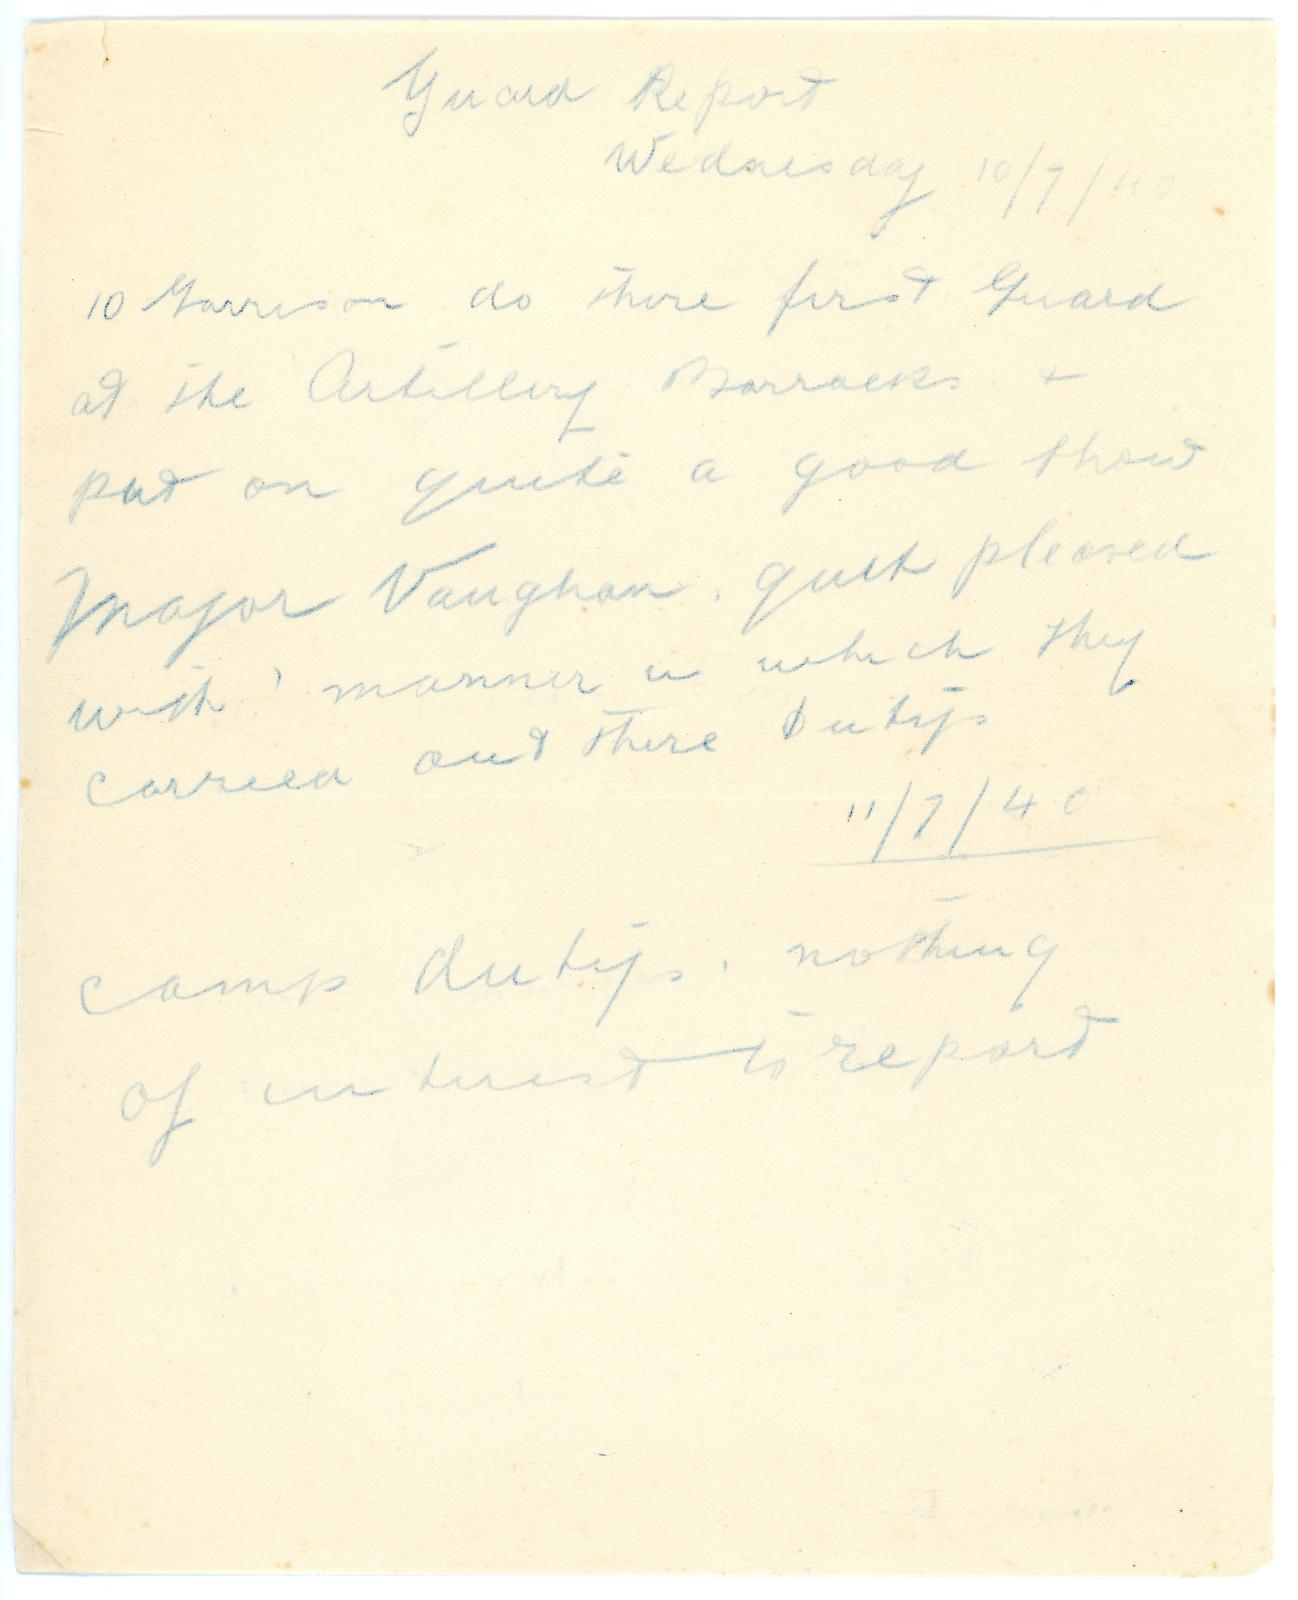 Guard Report
Wednesday 10/7/40
10 Garrison do there first Guard
at the Artillery Barracks +
put on quite a good show
Major Vaughan. quite pleased
with ' manner in which they
carried out there Dutys
11/7/40
camp dutys. nothing
of interest to report